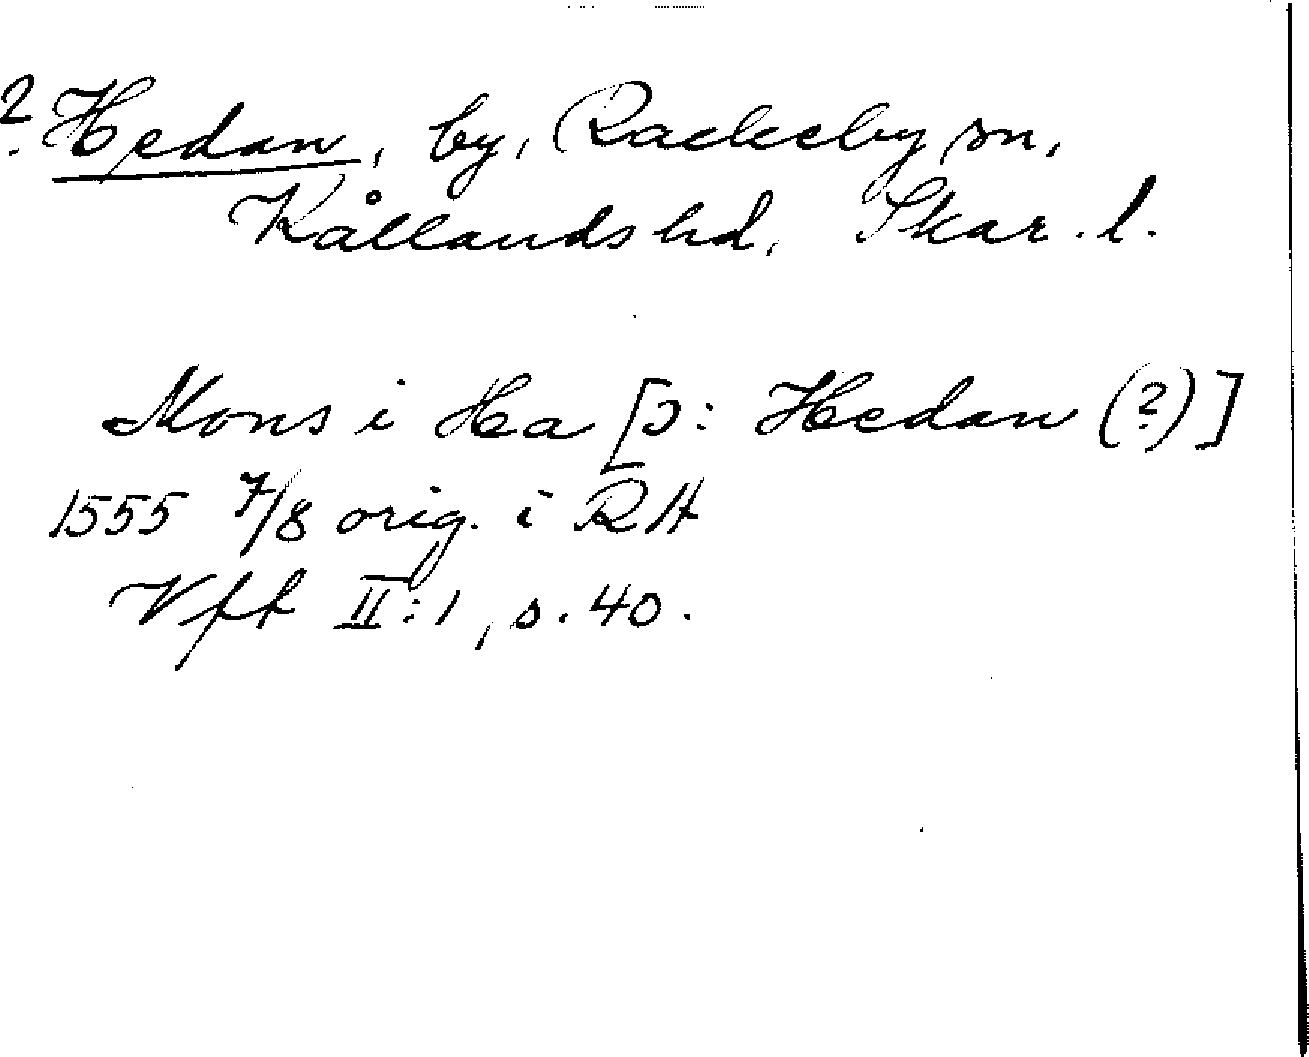 ? Hedan, by, Rackeby sn,
Kållands hd, Skar. l.
Mons i Hea [ɔ: Hedan (?)]
1555 7/8 orig. i RA
Vfft II:1, s. 40.